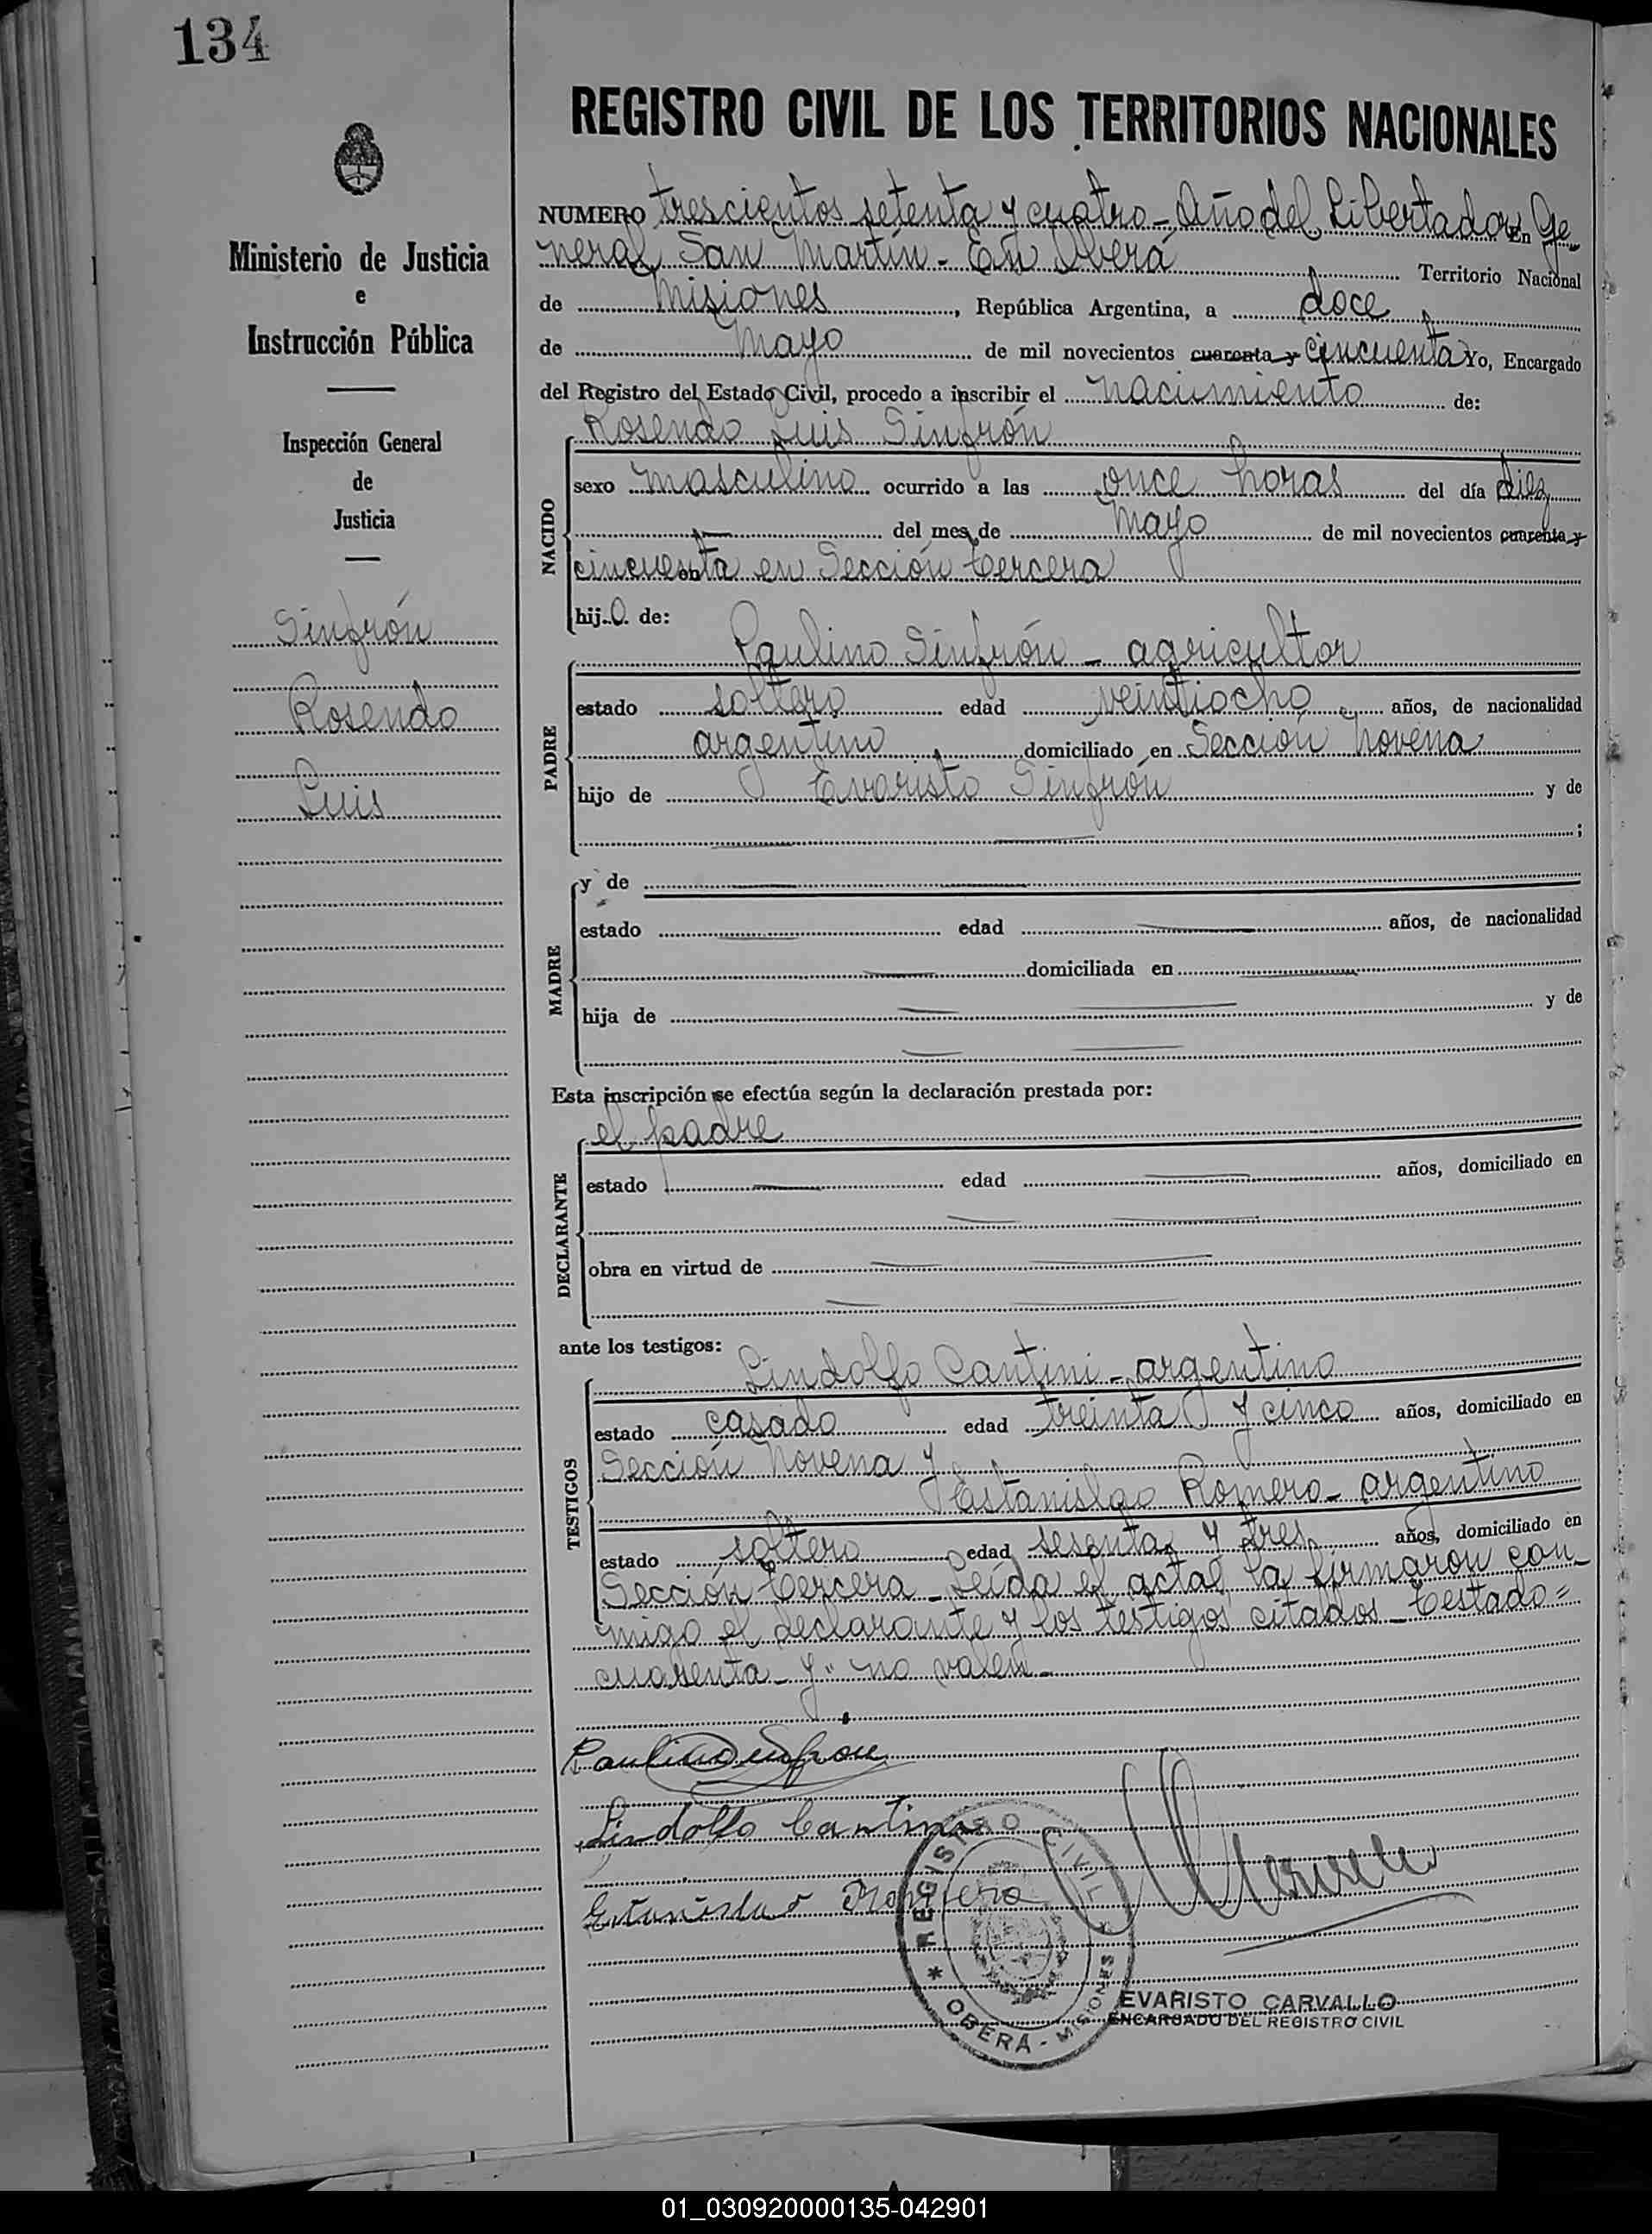 134
REGISTRO CIVIL DE LOS TERRITORIOS NACIONALES
Ministerio de Justicia
e
Instrucción Pública
Inspección General
de
Justicia
Sinfrón
Rosendo
Luis
NUMERO trescientos setenta y cuatro - Año del Libertador En Ge-
neral San Martín - En Oberá Territorio Nacional
de Misiones, República Argentina, a doce
de Mayo de mil novecientos cuarenta y cincuenta Yo, Encargado
del Registro del Estado Civil, procedo a inscribir el nacimiento de:
NACIDO
Rosendo Luis Sinfrón
sexo masculino ocurrido a las once horas del día diez
del mes de Mayo de mil novecientos cuarenta y
cincuenta en Sección tercera
hijo de:
PADRE
Paulino Sinfrón - agricultor
estado soltero edad veintiocho años, de nacionalidad
argentino domiciliado en Sección novena
hijo de Evaristo Sinfrón y de
;
MADRE
y de
estado edad años, de nacionalidad
domiciliada en
hija de y de
Esta inscripción se efectúa según la declaración prestada por:
DECLARANTE
el padre
estado edad años, domiciliado en
obra en virtud de
ante los testigos:
TESTIGOS
Lindolfo Cantini - argentino
estado casado edad treinta y cinco años, domiciliado en
Sección novena y
Estanislao Romero - argentino
estado soltero edad sesenta y tres años, domiciliado en
Sección tercera - Leída el acta, la firmaron con-
migo el declarante y los testigos citados - Testado =
cuarenta - y" no valen -
Paulino Sinfron
Lindolfo Cantini
Estanislao Romero
REGISTRO CIVIL
* OBERÁ - MISIONES
EVARISTO CARVALLO
ENCARGADO DEL REGISTRO CIVIL
01_030920000135-042901